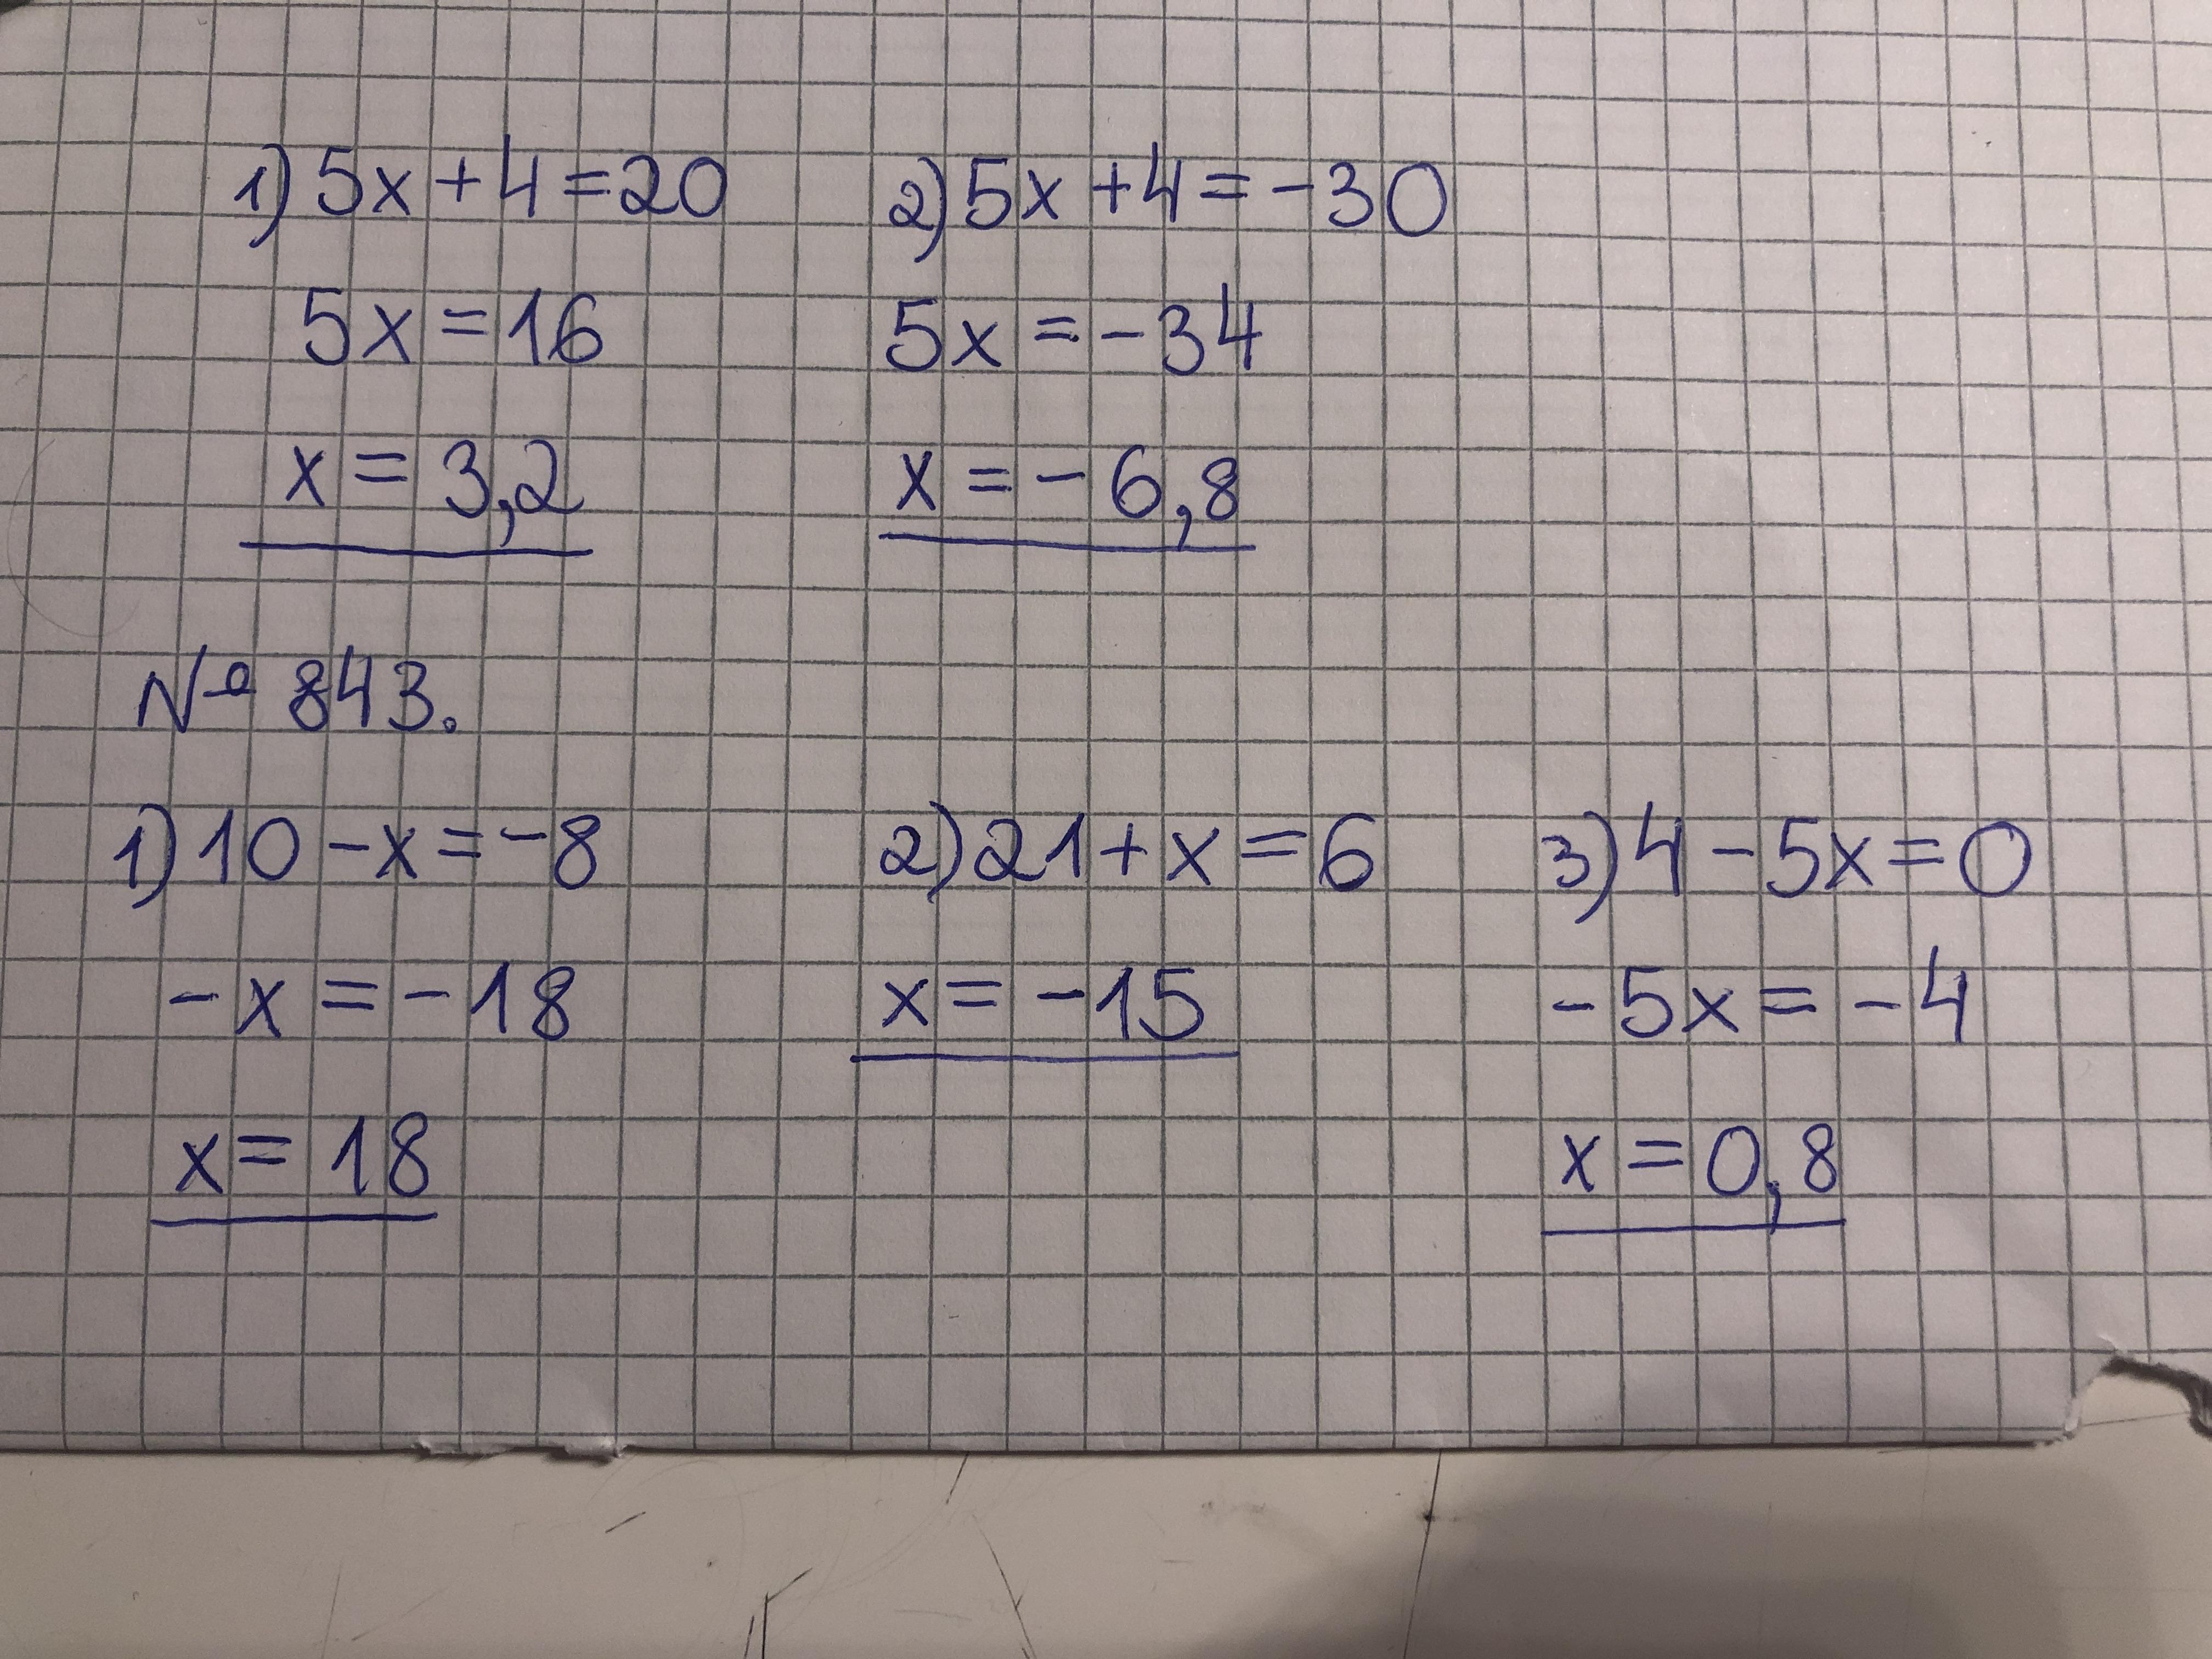 1) 5x + 4 = 20
5x = 16
x = 3,2
2) 5x + 4 = -30
5x = -34
x = -6,8
№ 843.
1) 10 - x = -8
-x = -18
x = 18
2) 21 + x = 6
x = -15
3) 4 - 5x = 0
-5x = -4
x = 0,8